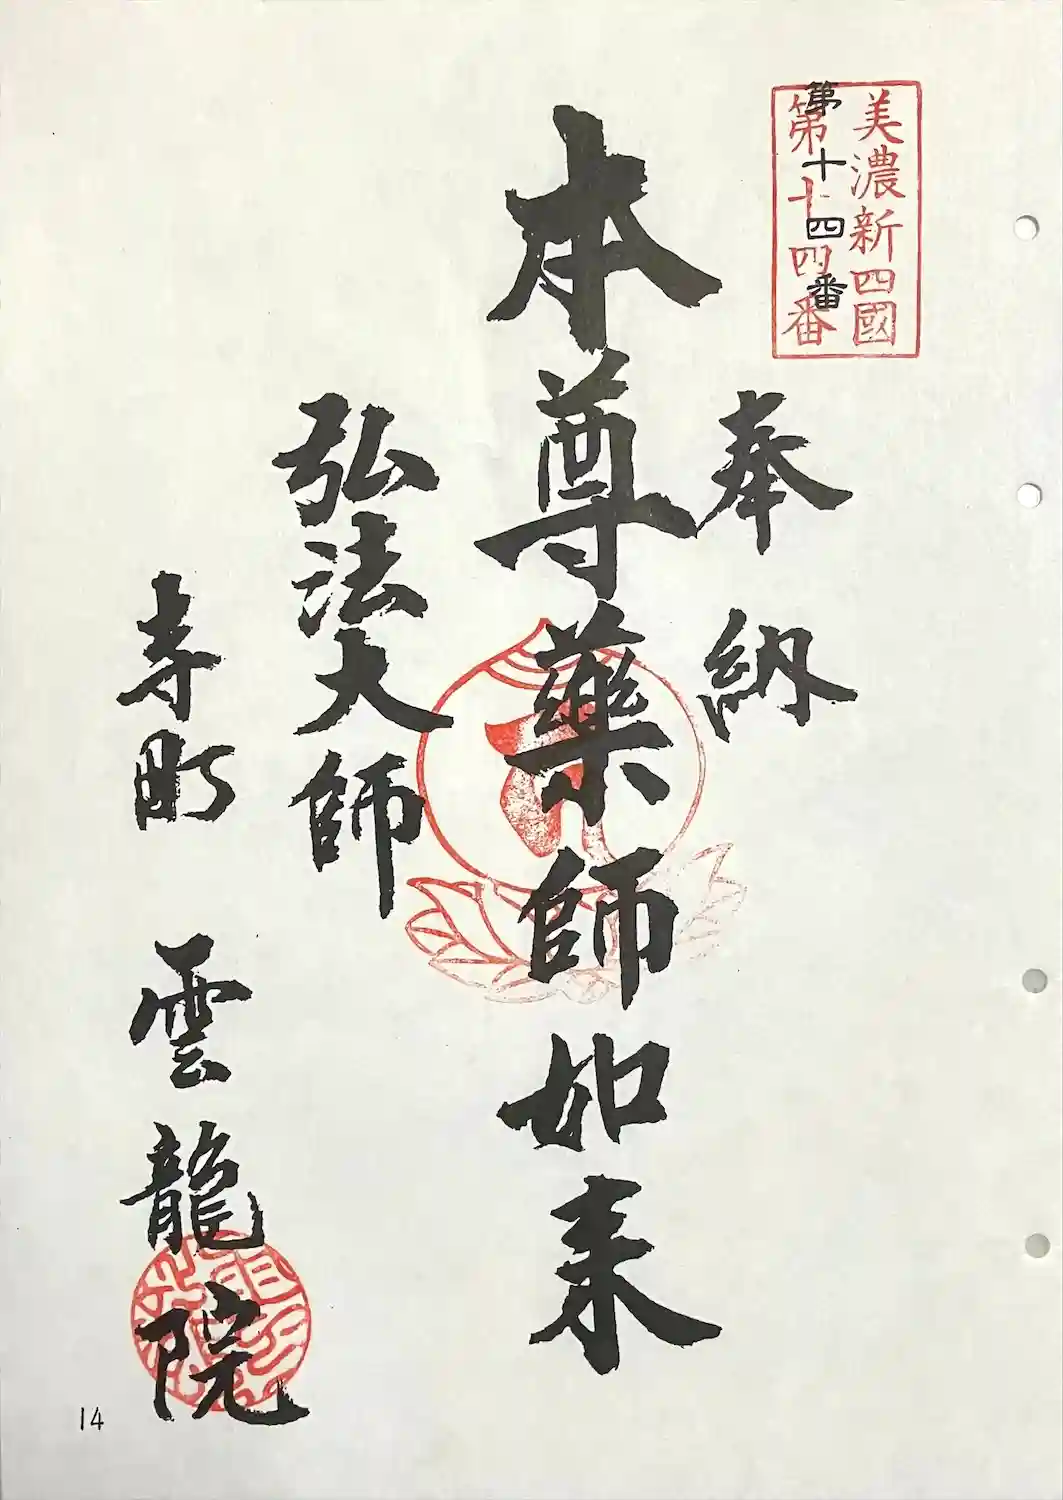 美濃新四國
第十四番
第十四番
奉納
本尊藥師如来
弘法大師
寺町 雲龍院
14